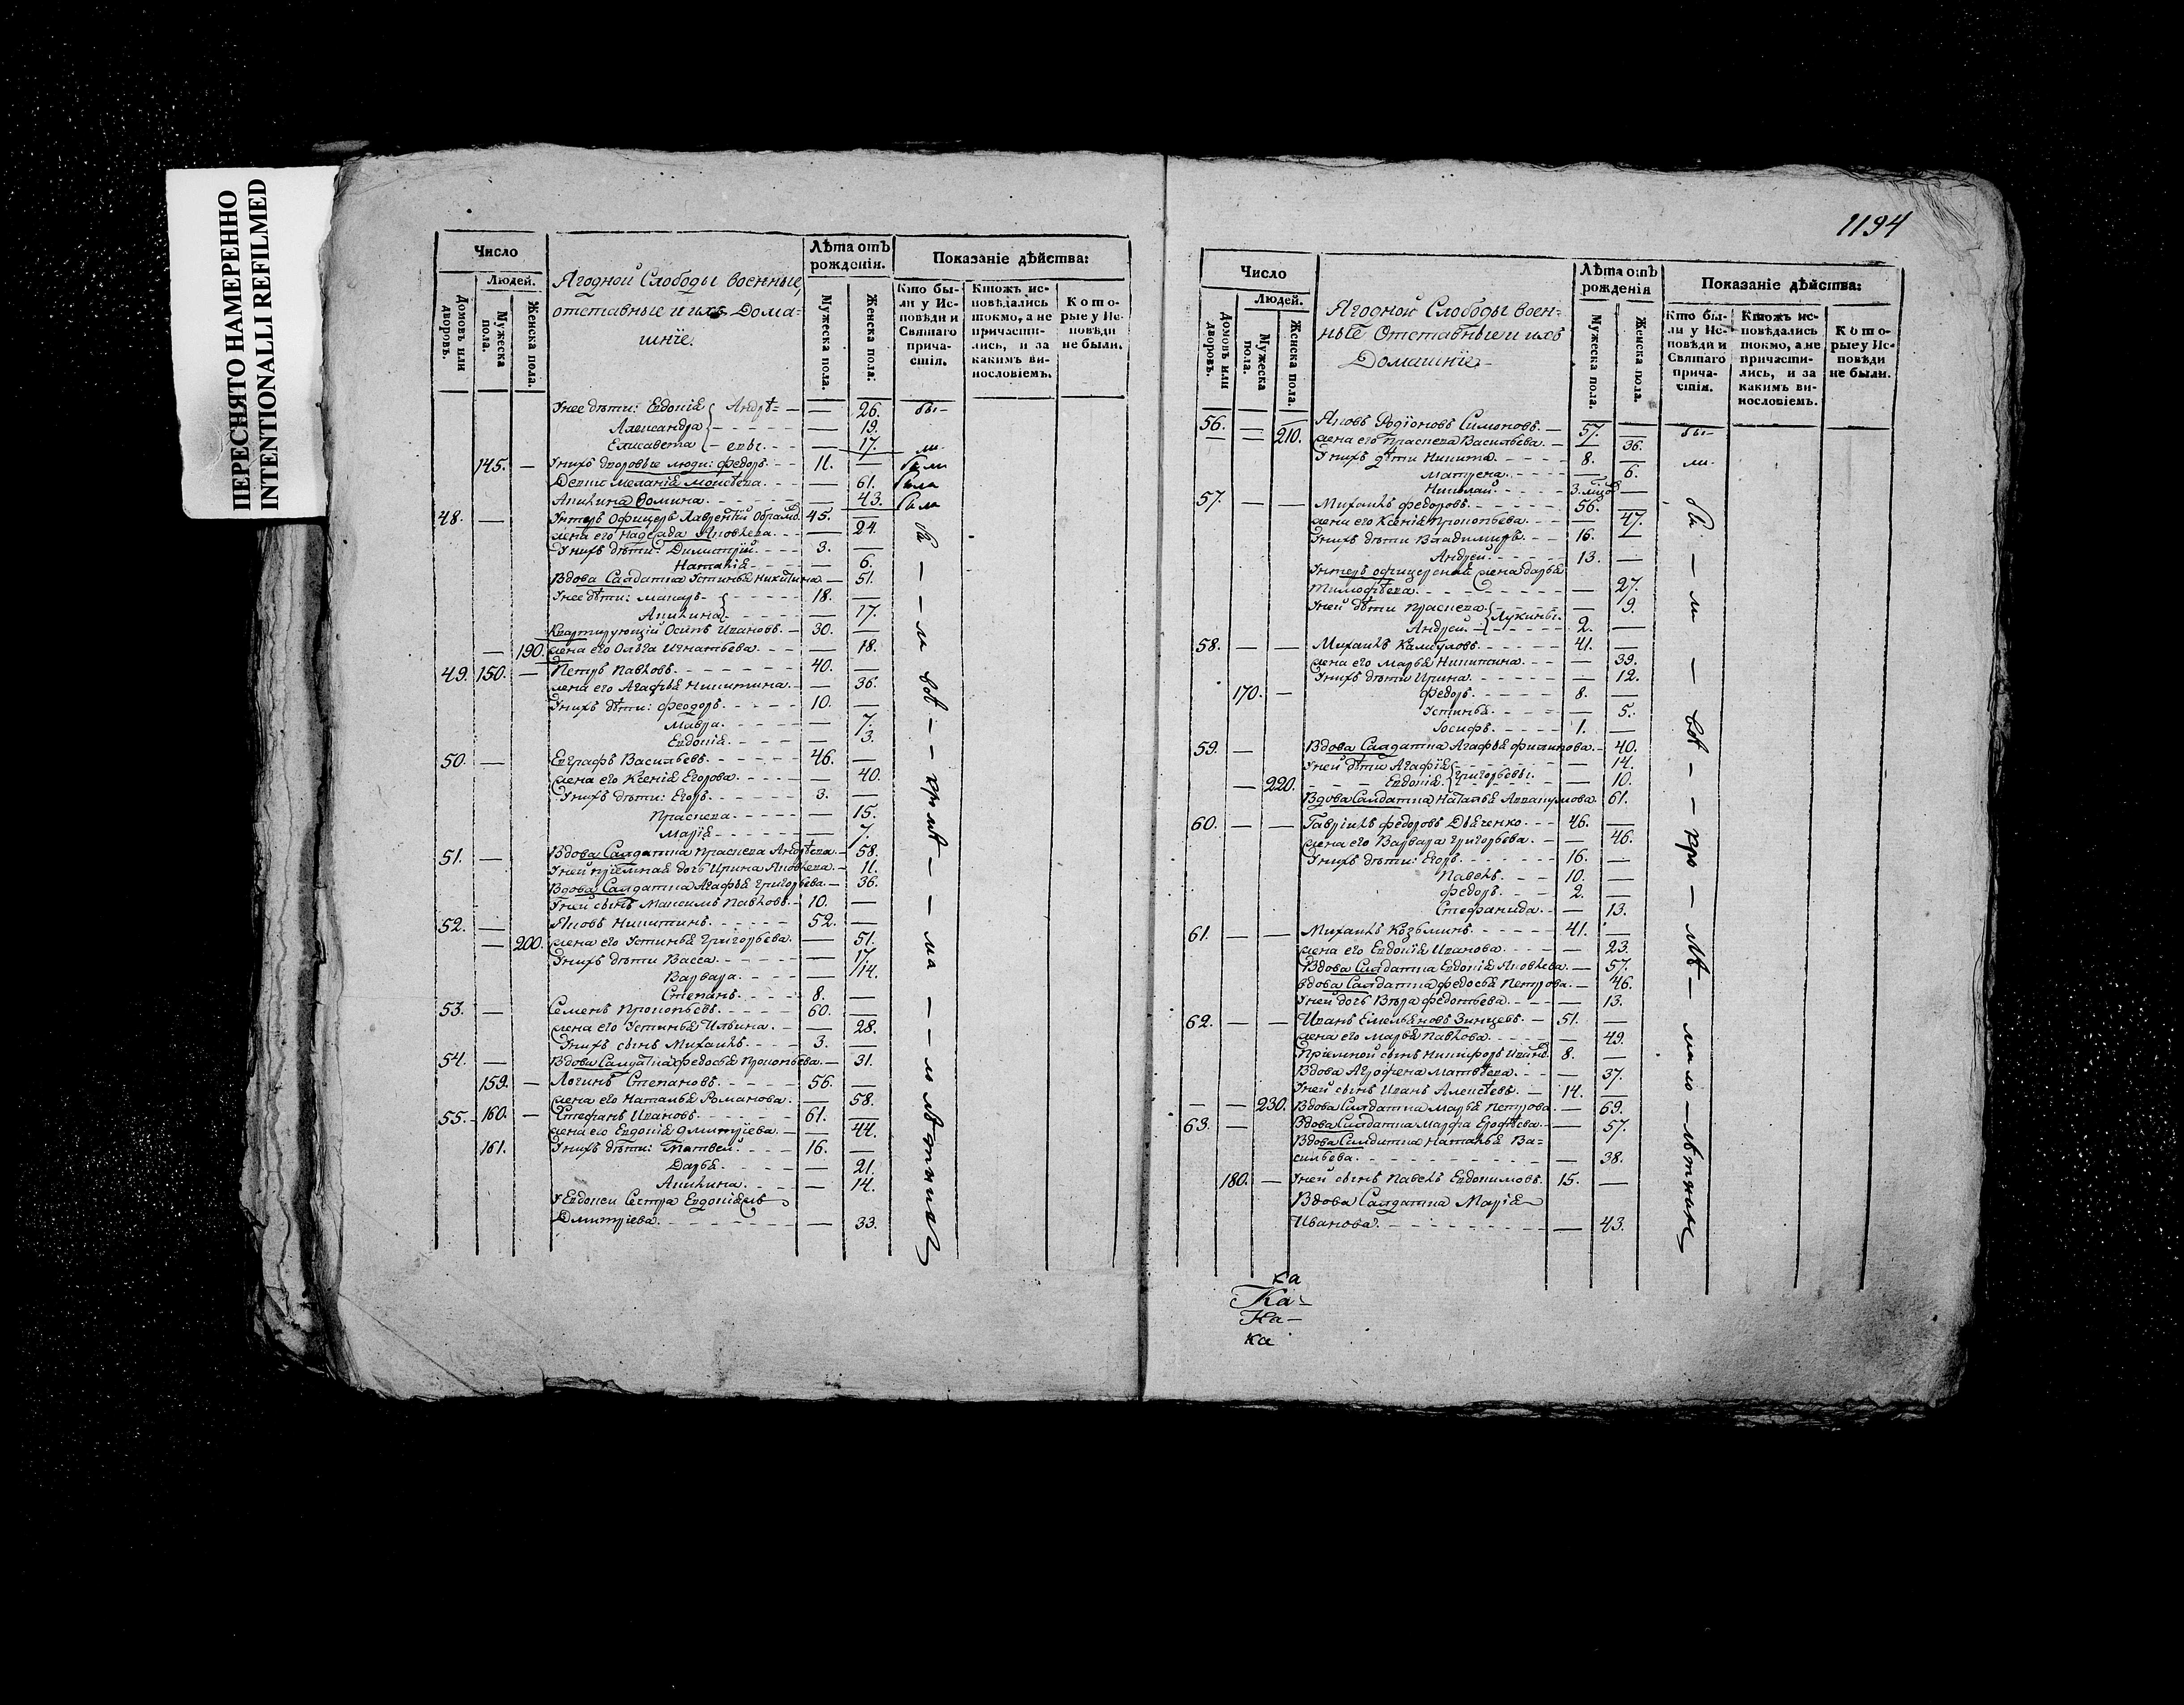 ПЕРЕСНЯТО НАМЕРЕННО
INTENTIONALLI REFILMED
Число
Людей.
Домовъ или дворовъ.
Мужеска пола.
Женска пола.
Ягодной Слободы военные,
отставные и ихъ Дома=
шніе.
Лѣта отъ рожденія.
Мужеска пола.
Женска пола.
Показаніе дѣйства:
Кто бы-
ли у Ис-
повѣди и
Святаго
прича-
стія.
Ктожъ ис-
повѣдались
токмо, а не
причасти-
лись, и за
какимъ ви-
нословіемъ.
Кото-
рые у Ис-
повѣди
не были.
У нее дѣти: Евдокія Андрѣ= — 26. бы-
Александра — 19.
Елисавета евы. — 17. ли.
145. — У нихъ дворовые люди: Федоръ. 11. — были
Меланія Моисѣева. — 61. была
Акилина Фомина. — 43. была
48. — Унтеръ Офицеръ Лаврентій 45. —
жена его Надежда Яковлева. — 24.
У нихъ дѣти: Димитрій. 3. —
Наталія — 6.
Вдова Салдатка Устинья Никитина — 51.
У нее дѣти: Макаръ 18. —
Акилина — 17.
Квартирующій Осипъ Ивановъ. 30. —
— 190. жена его Ольга Игнатьева. — 18.
49. 150. — Петръ Павловъ. 40. —
жена его Агафья Никитина. — 36.
У нихъ дѣти: Феодоръ. 10. —
Мавра. — 7.
Евдокія. — 3.
50. — Евграфъ Васильевъ. 46. —
жена его Ксенія Егорова. — 40.
У нихъ дѣти: Егоръ. 3. —
Праскева. — 15.
Марія — 7.
51. — Вдова Салдатка Праскева Андрѣева. — 58.
У ней пріемная дочь Ирина Яковлева. — 11.
Вдова Салдатка Агафья Григорьева. — 36.
У ней сынъ Максимъ Павловъ. 10. —
52. — Яковъ Никитинъ. 52. —
— 200. жена его Устинья Григорьева. — 51.
У нихъ дѣти Васса. — 17.
Варвара. — 14.
Степанъ. 8. —
53. — Семенъ Прокопьевъ. 60. —
жена его Устинья Ильина. — 28.
У нихъ сынъ Михаилъ. 3. —
54. — Вдова Салдатка Федосья Прокопьева. — 31.
159. — Логинъ Степановъ. 56. —
жена его Наталья Романова. — 58.
55. 160. — Стефанъ Ивановъ. 61. —
жена его Евдокія Дмитріева. — 44.
161. У нихъ дѣти: Матвей. 16. —
Дарья. — 21.
Акилина. — 14.
У Евдокеи Сестра Евдокія
Дмитріева. — 33.
бы — — ли всѣ — — кро мѣ — — ма — — ло лѣтнихъ
1194
Число
Людей.
Домовъ или дворовъ.
Мужеска пола.
Женска пола.
Ягодной Слободы воен=
ные Отставные и ихъ
Домашніе
Лѣта отъ рожденія
Мужеска пола.
Женска пола.
Показаніе дѣйства:
Кто бы-
ли у Ис-
повѣди и
Святаго
прича-
стія.
Ктожъ ис-
повѣдались
токмо, а не
причасти-
лись, и за
какимъ ви-
нословіемъ.
Кото-
рые у Ис-
повѣди
не были.
56. — Яковъ Родіоновъ Симоновъ. 57. — бы-
— — 210. жена его Праскева Васильева. — 36.
У нихъ дѣти Никита. 8. — ли.
Матрена. — 6.
Николай. 3. —
57. — — Михаилъ Федоровъ. 56. —
жена его Ксенія Прокопьева. — 47.
У нихъ дѣти Владимиръ. 16. —
Андрей. 13. —
Унтеръ офицерская жена Дарья
Тимофѣева. — 27.
У ней дѣти Праскева. Лукины. — 9.
Андрей. 2. —
58. — — Михаилъ Камбуловъ. 41. —
жена его Марья Никитина. — 39.
У нихъ дѣти Ирина. — 12.
170. — Федоръ. 8. —
Устинья. — 5.
Іосифъ. 1. —
59. — Вдова Салдатка Агафья Филипова. — 40.
У ней дѣти Агафія Григорьевы. — 14.
— 220. Евдокія. — 10.
Вдова Салдатка Наталья 61.
60. — — Гавріилъ Федоровъ Дьяченко. 46. —
жена его Варвара Григорьева. — 46.
У нихъ дѣти: Егоръ. 16. —
Павелъ. 10. —
Федоръ. 2. —
Стефанида. — 13.
61. — — Михаилъ Козьминъ. 41. —
жена его Евдокія Иванова. — 23.
Вдова Салдатка Евдокія Яковлева. — 57.
Вдова Салдатка Федосья Петрова. — 46.
У ней дочь Вѣра Федотьева. — 13.
62. — — Иванъ Емельяновъ Зинцевъ. 51. —
жена его Марья Павлова. — 49.
Пріемной сынъ Никифоръ 8. —
Вдова Агрофена Матвѣева. — 37.
У ней сынъ Иванъ Алексѣевъ. 14. —
— — 230. Вдова Салдатка Марья Петрова. — 69.
63. — Вдова Салдатка Марфа Ерофѣева. — 57.
Вдова Салдатка Наталья Ва=
сильева. — 38.
180. — У ней сынъ Павелъ Евдокимовъ. 15. —
Вдова Салдатка Марія
Иванова. — 43.
бы — ли — всѣ — — кро — мѣ — мало — лѣтныхъ
ка
Ка-
На-
ка